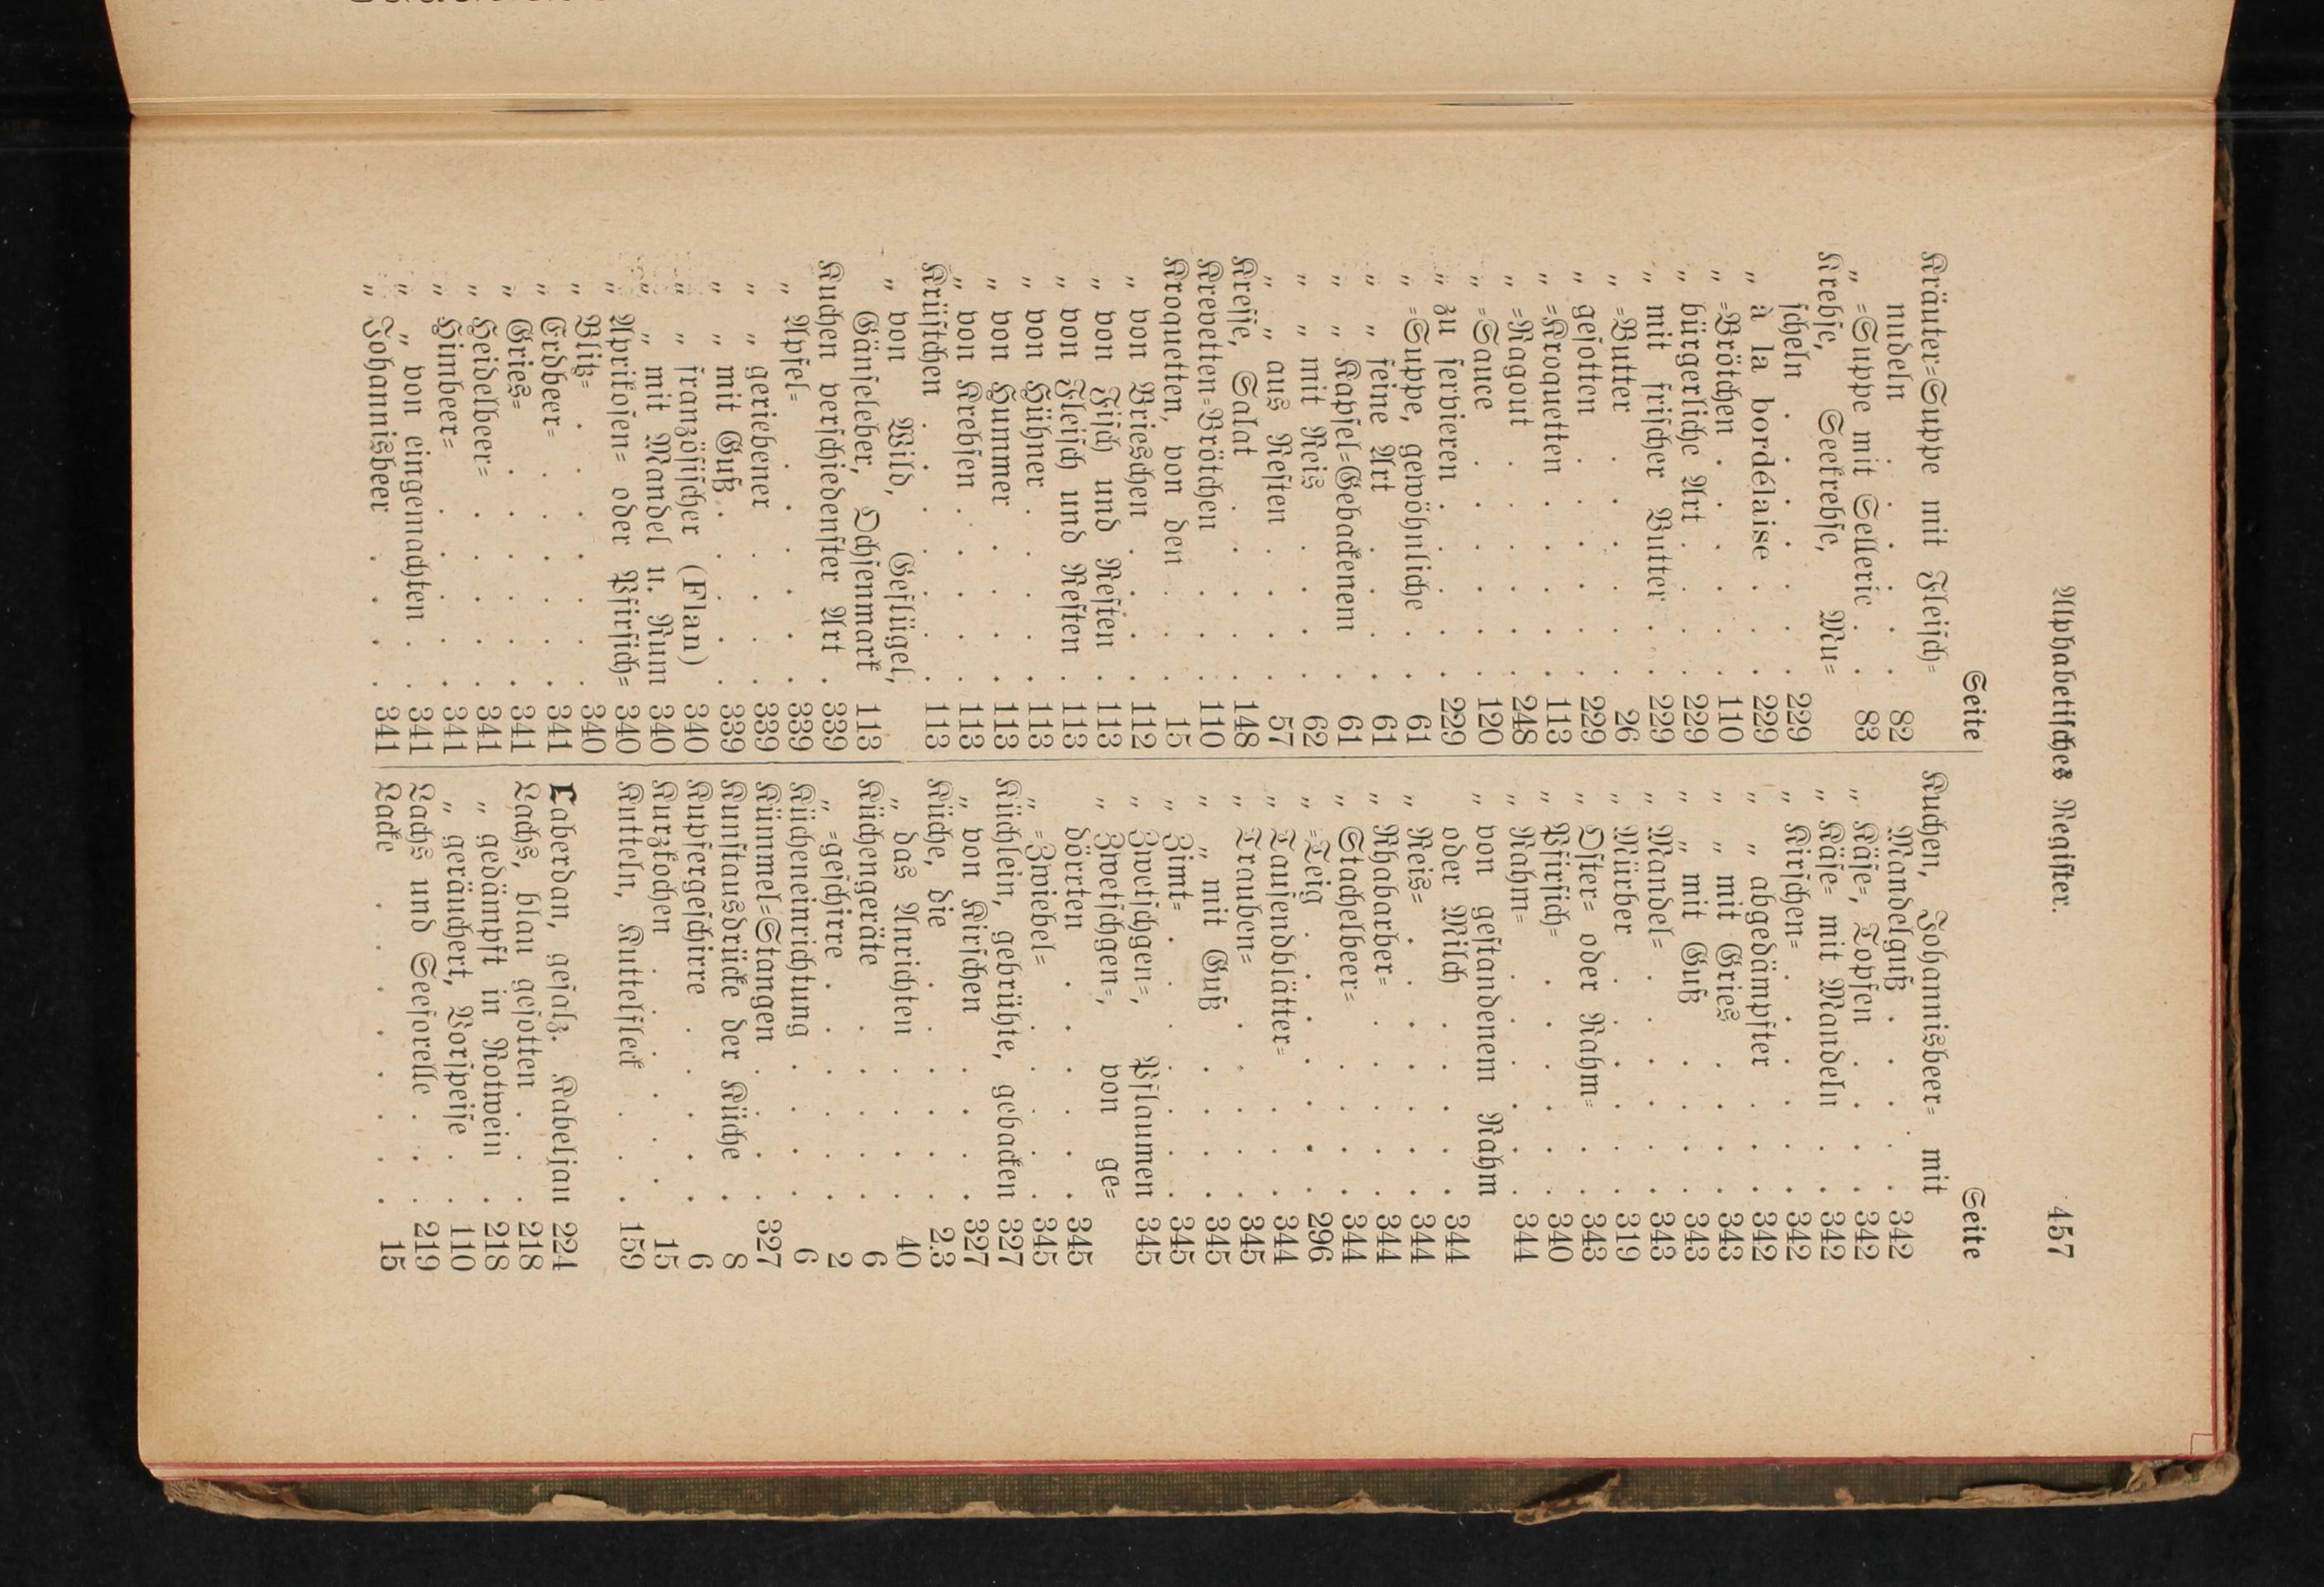 Alphabetisches Register. 457
Seite
Kräuter=Suppe mit Fleisch=
nudeln . . . . . 82
„ =Suppe mit Sellerie . . 83
Krebse, Seekrebse, Mu=
scheln . . . . . . 229
„ à la bordélaise . . . 229
„ =Brötchen . . . . . 110
„ bürgerliche Art . . . 229
„ mit frischer Butter . . 229
„ =Butter . . . . . 26
„ gesotten . . . . . 229
„ =Kroquetten . . . . 113
„ =Ragout . . . . . 248
„ =Sauce . . . . . 120
„ zu servieren . . . . 229
„ =Suppe, gewöhnliche . . 61
„ „ feine Art . . . . 61
„ „ Kapsel=Gebackenem . 61
„ „ mit Reis . . . . 62
„ „ aus Resten . . . 57
Kresse, Salat . . . . . 148
Krevetten=Brötchen . . . 110
Kroquetten, von den . . . 15
„ von Brieschen . . . 112
„ von Fisch und Resten . 113
„ von Fleisch und Resten . 113
„ von Hühner . . . . 113
„ von Hummer . . . . 113
„ von Krebsen . . . . 113
Krüstchen . . . . . . 113
„ von Wild, Geflügel,
Gänseleber, Ochsenmark 113
Kuchen verschiedenster Art . 339
„ Apfel= . . . . . 339
„ „ geriebener . . . 339
„ „ mit Guß . . . . 339
„ „ französischer (Flan) 340
„ „ mit Mandel u. Rum 340
„ Aprikosen= oder Pfirsich= 340
„ Blitz= . . . . . 340
„ Erdbeer= . . . . . 341
„ Gries= . . . . . 341
„ Heidelbeer= . . . . 341
„ Himbeer= . . . . . 341
„ „ von eingemachten . 341
„ Johannisbeer . . . . 341
Seite
Kuchen, Johannisbeer= mit
Mandelguß . . . . 342
„ Käse=, Topfen . . . . 342
„ Käse= mit Mandeln . . 342
„ Kirschen= . . . . . 342
„ „ abgedämpfter . . . 342
„ „ mit Gries . . . . 343
„ „ mit Guß . . . . 343
„ Mandel= . . . . . 343
„ Mürber . . . . . 319
„ Oster= oder Rahm= . . 343
„ Pfirsich= . . . . . 340
„ Rahm= . . . . . 344
„ von gestandenem Rahm
oder Milch . . . . 344
„ Reis= . . . . . . 344
„ Rhabarber= . . . . 344
„ Stachelbeer= . . . . 344
„ =Teig . . . . . . 296
„ Tausendblätter= . . . 344
„ Trauben= . . . . . 345
„ „ mit Guß . . . . 345
„ Zimt= . . . . . . 345
„ Zwetschgen=, Pflaumen 345
„ Zwetschgen=, von ge=
dörrten . . . . . 345
„ =Zwiebel= . . . . . 345
Küchlein, gebrühte, gebacken 327
„ von Kirschen . . . . 327
Küche, die . . . . . . 2.3
„ das Anrichten . . . . 40
Küchengeräte . . . . . 6
„ =geschirre . . . . . 2
Kücheneinrichtung . . . . 6
Kümmel=Stangen . . . . 327
Kunstausdrücke der Küche . 8
Kupfergeschirre . . . . . 6
Kurzkochen . . . . . . 15
Kutteln, Kuttelfleck . . . 159
Laberdan, gesalz. Kabeljau 224
Lachs, blau gesotten . . . 218
„ gedämpft in Rotwein . 218
„ geräuchert, Vorspeise . 110
Lachs und Seeforelle . . . 219
Lacke . . . . . . . . 15